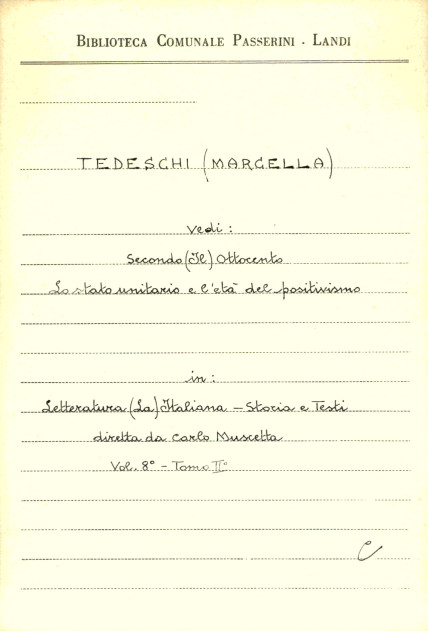 BIBLIOTECA COMUNALE PASSERINI - LANDI
TEDESCHI (MARCELLA)
Vedi:
Secondo (Il) Ottocento
Lo stato unitario e l'età del positivismo
in:
Letteratura (La) Italiana - Storia e Testi
diretta da Carlo Muscetta
Vol. 8° - Tomo II°
C